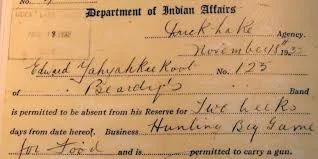 Department of Indian Affairs
Duck Lake Agency.
November 18th, 193
Edward Yahyahkeekoot No. 125
of Beardy's Band
is permitted to be absent from his Reserve for Two weeks
days from date hereof. Business Hunting Big Game
for Food and is permitted to carry a gun.